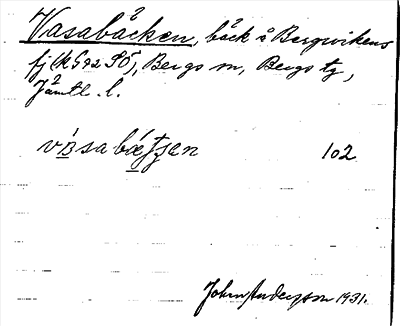 Vasabäcken, bäck å Bergvikens
fj (k G 92 SO), Bergs sn, Bergs tg,
Jämtl. l.
102
John Andersson 1931.